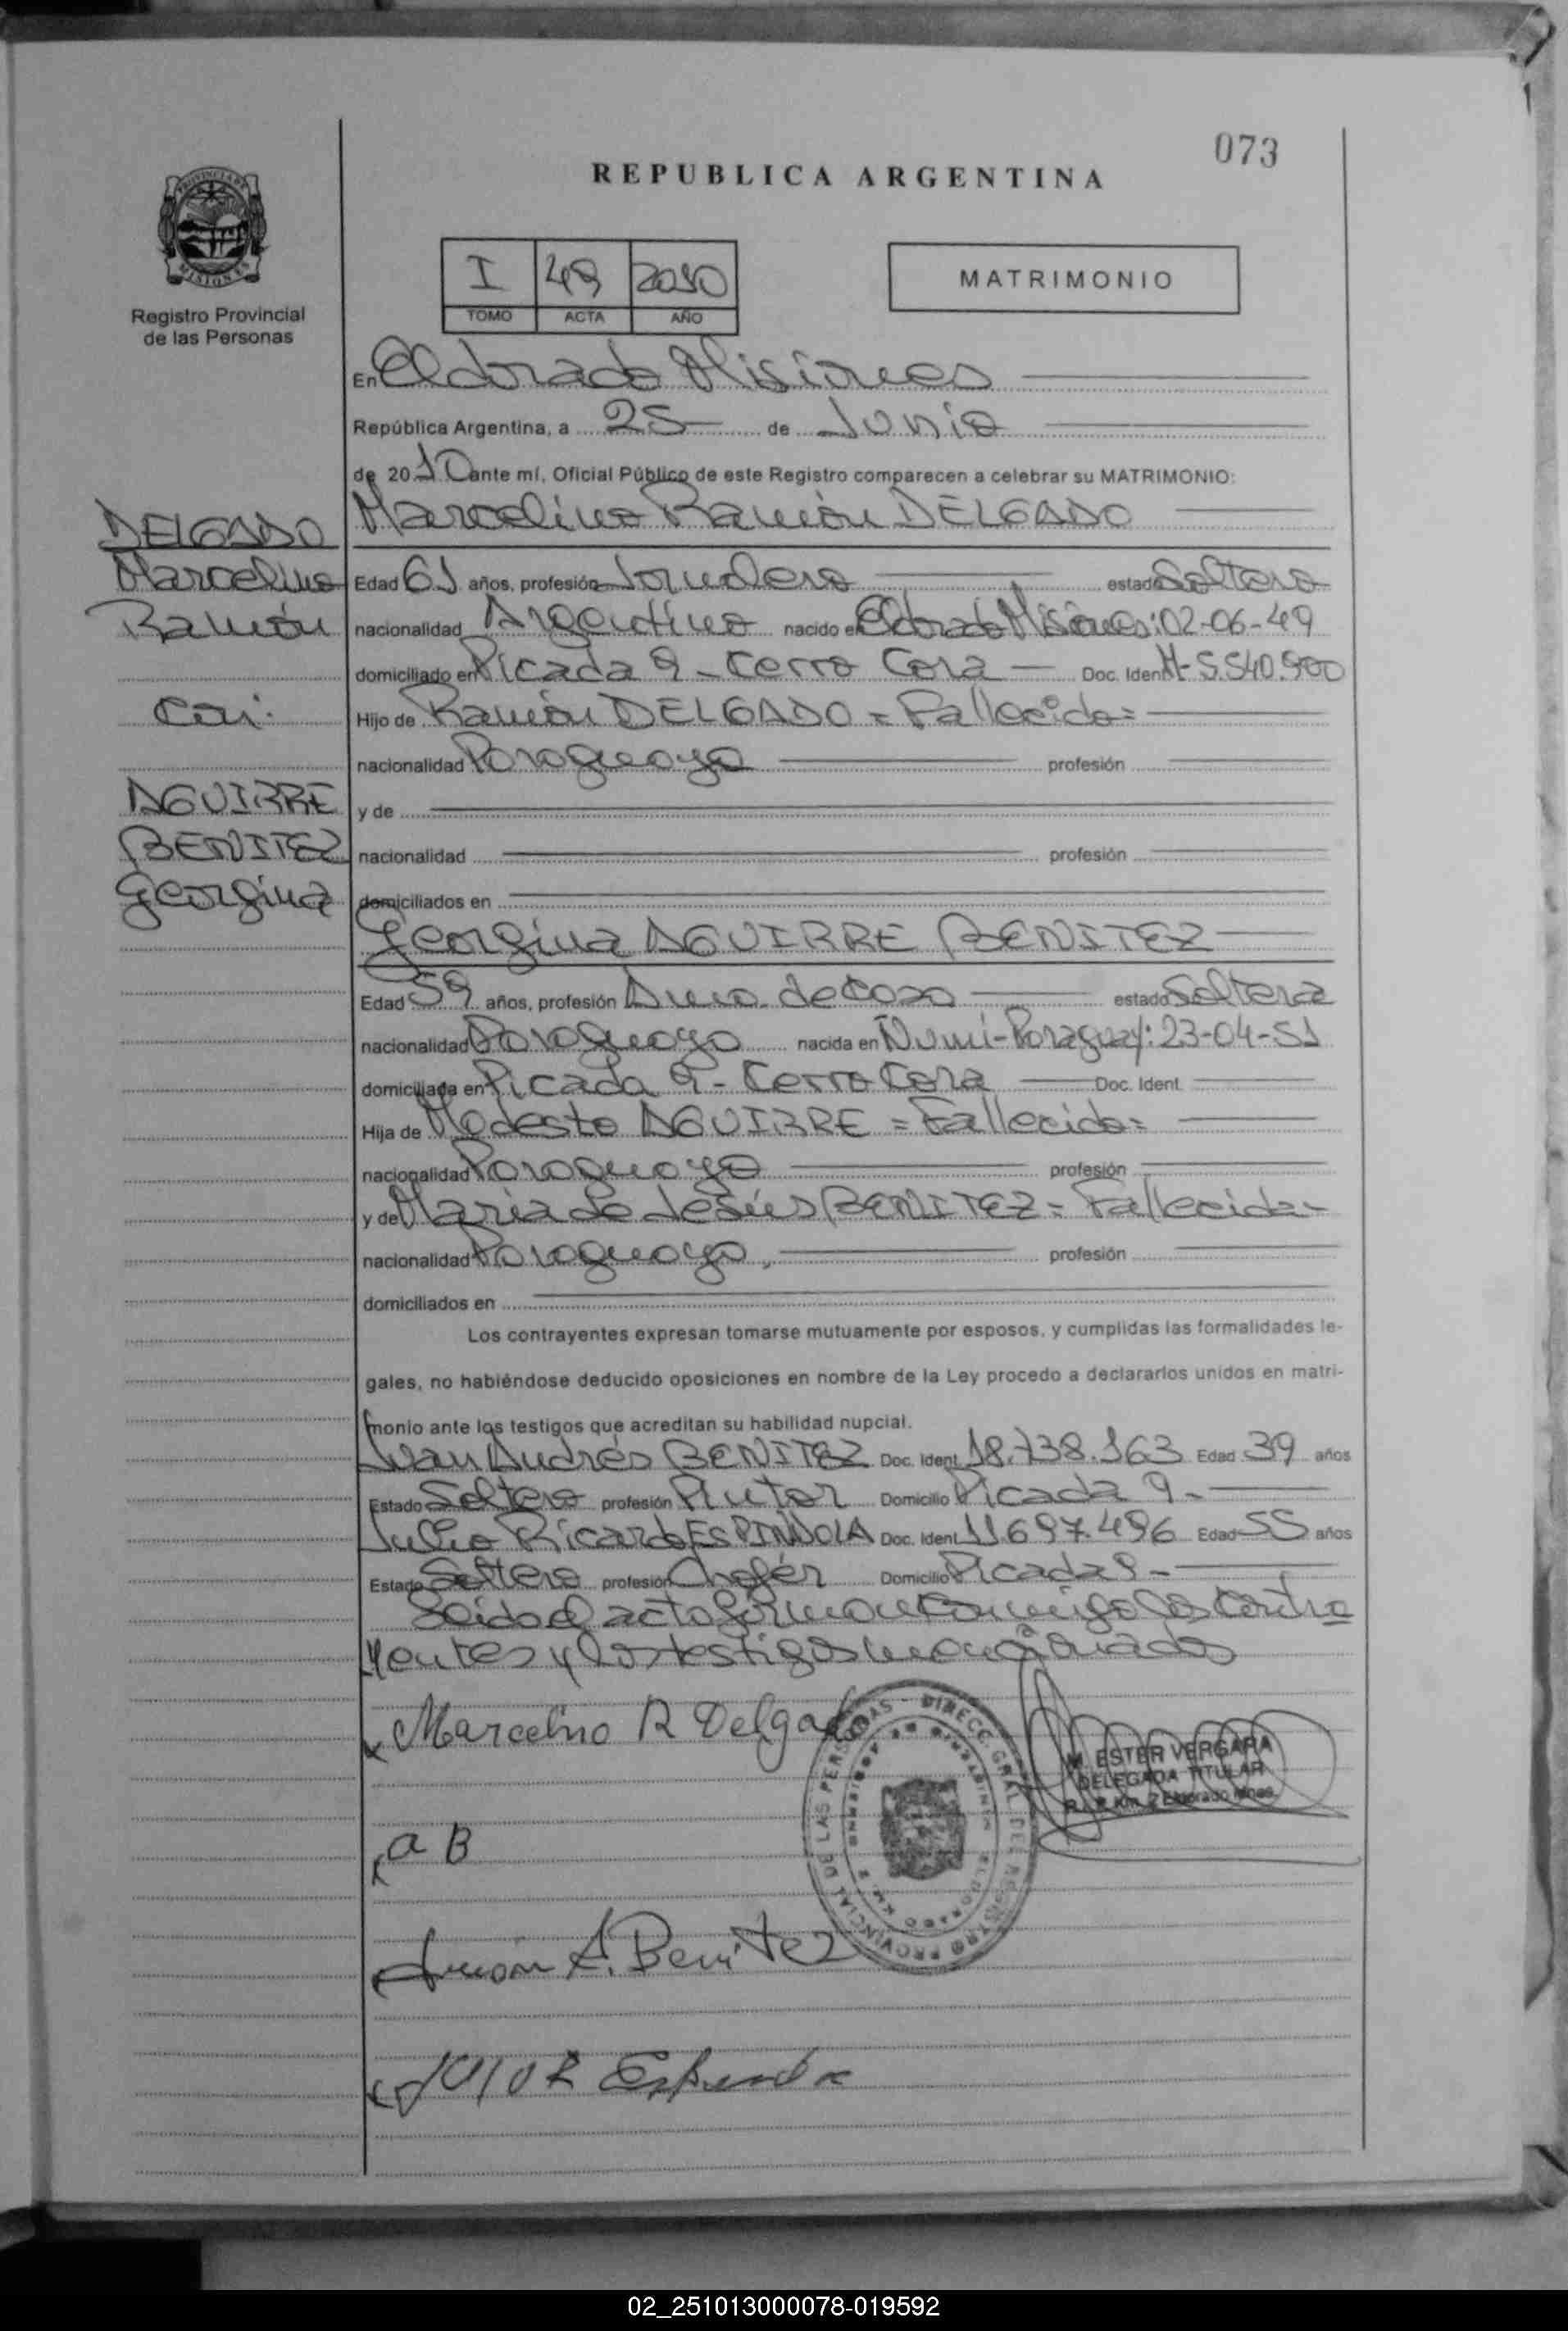 073
REPUBLICA ARGENTINA
PROVINCIA DE
MISIONES
Registro Provincial
de las Personas
I 49 2010
TOMO ACTA AÑO
MATRIMONIO
En Eldorado Misiones
República Argentina, a 25 de Junio
de 2010 ante mí, Oficial Público de este Registro comparecen a celebrar su MATRIMONIO:
DELGADO
Marcelino
Ramón
Con:
AGUIRRE
BENITEZ
Georgina
Marcelino Ramón DELGADO
Edad 61 años, profesión Jornalero estado Soltero
nacionalidad Argentino nacido en Eldorado Misiones: 02-06-49
domiciliado en Picada 9 - Cerro Cora Doc. Ident M-5.540.900
Hijo de Ramón DELGADO = Fallecido=
nacionalidad Paraguaya profesión
y de
nacionalidad profesión
domiciliados en
Georgina AGUIRRE BENITEZ
Edad 59 años, profesión Ama de casa estado Soltera
nacionalidad Paraguaya nacida en Ñumi-Paraguay: 23-04-51
domiciliada en Picada 9 - Cerro Cora Doc. Ident.
Hija de Modesto AGUIRRE = Fallecido=
nacionalidad Paraguaya profesión
y de María de Jesús BENITEZ = Fallecida=
nacionalidad Paraguaya, profesión
domiciliados en
Los contrayentes expresan tomarse mutuamente por esposos, y cumplidas las formalidades le-
gales, no habiéndose deducido oposiciones en nombre de la Ley procedo a declararlos unidos en matri-
monio ante los testigos que acreditan su habilidad nupcial.
Juan Andrés BENITEZ Doc. Ident. 18.738.163 Edad 39 años
Estado Soltero profesión Pintor Domicilio Picada 9.
Julio Ricardo ESPINDOLA Doc. Ident 11.697.496 Edad 55 años
Estado Soltero profesión Chofér Domicilio Picada 9.
Leída el acta firman conmigo los contra
yentes y los testigos mencionados
Marcelino R Delgado
M. ESTER VERGARA
DELEGADA TITULAR
Km. 2 Eldorado Mnes
a B
A. Benitez
DIRECC. GRAL. DEL REGISTRO PROVINCIAL DE LAS PERSONAS
ELDORADO KM. 2
Julio R Espindola
02_251013000078-019592